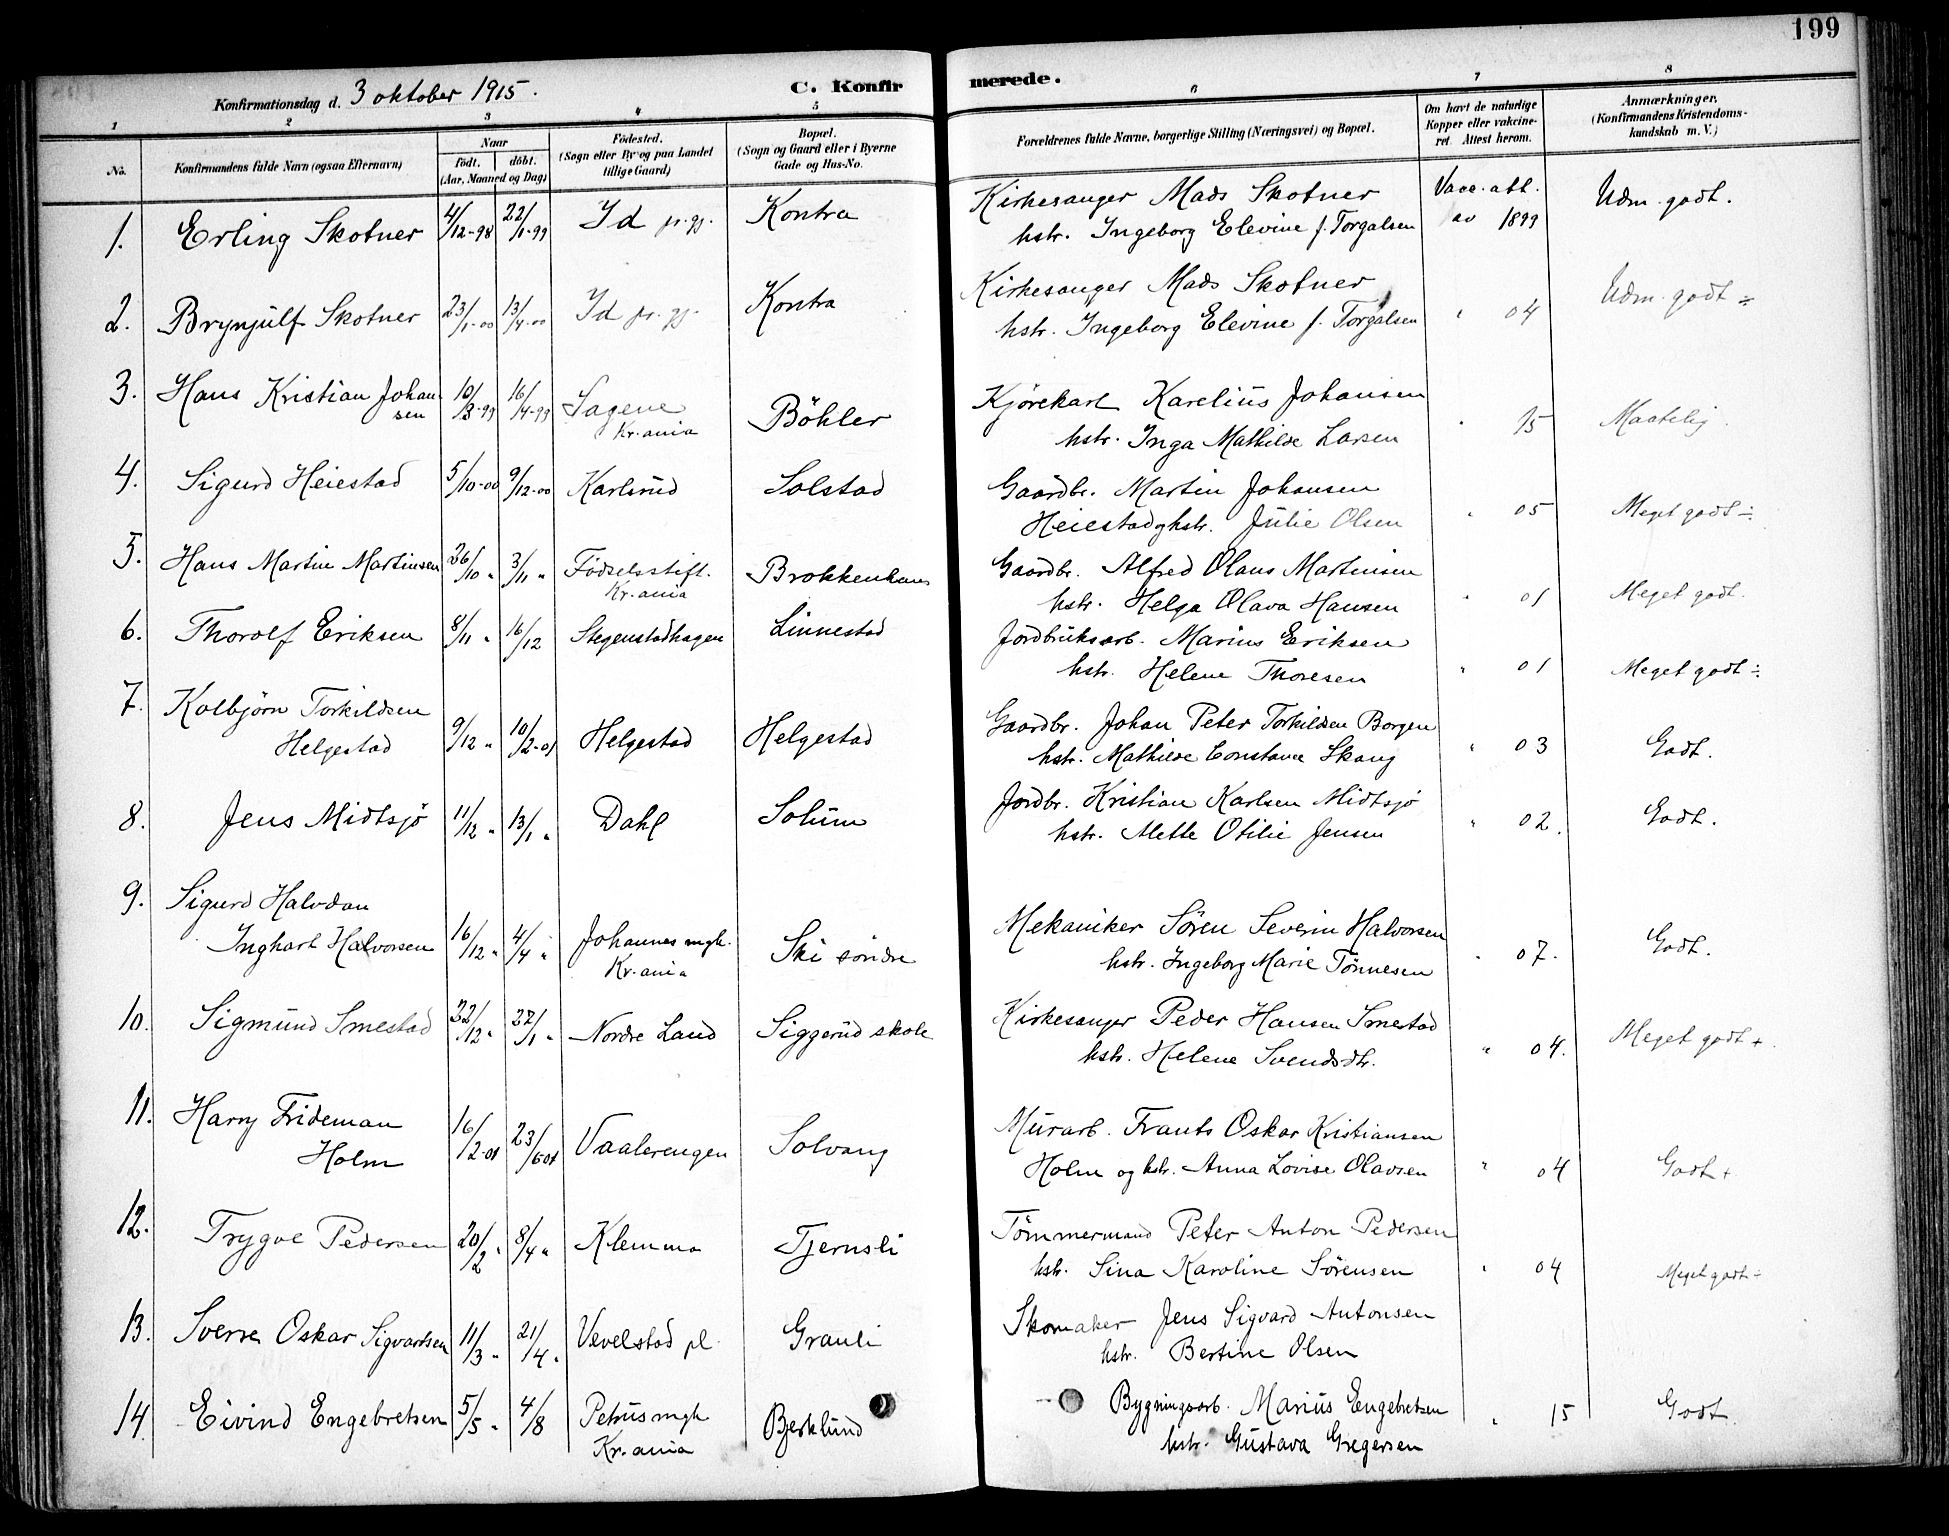 199
Konfirmationsdag d. 3 oktober 1915.
C. Konfirmerede.
1 2 3 4 5 6 7 8
No.
Konfirmandens fulde Navn (ogsaa Efternavn)
Naar
født. døbt.
(Aar, Maaned og Dag)
Fødested.
(Sogn eller By og paa Landet
tillige Gaard)
Bopæl.
(Sogn og Gaard eller i Byerne
Gade og Hus-No.
Forældrenes fulde Navne, borgerlige Stilling (Næringsvei) og Bopæl.
Om havt de naturlige
Kopper eller vakcine-
ret. Attest herom.
Anmærkninger.
(Konfirmandens Kristendoms-
kundskab m. V.)
1. Erling Skotner 4/12-98 22/1-99 Id pr.gj. Kontra Kirkesanger Mads Skotner Vacc. att. Udm. godt.
hstr. Ingeborg Elevine f. Torgalsen av 1899
2. Brynjulf Skotner 23/1-00 13/4-00 Id pr. gj. Kontra Kirkesanger Mads Skotner Udm. godt ÷
hstr. Ingeborg Elevine f. Torgalsen " 04
3. Hans Kristian Johan 10/3-99 16/4-99 Sagene Böhler Kjörekarl Karelius Johansen " 15 Maatelig.
sen Kr.ania hstr. Inga Mathilde Larsen
4. Sigurd Heiestad 5/10-00 9/12-00 Karlsrud Solstad Gaardbr. Martin Johansen
Heiestad og hstr. Julie Olsen " 05 Meget godt ÷
5. Hans Martin Martinsen 26/10 " 3/11 " Födselsstift. Brokkenhuus Gaardbr. Alfred Olaus Martinsen
Kr.ania hstr. Helga Olava Hansen " 01 Meget godt.
6. Thorolf Eriksen 8/11 " 16/12 Stegenstadhagen Linnestad Jordbruksarb. Marius Eriksen
hstr. Helene Thoresen " 01 Meget godt ÷
7. Kolbjörn Torkildsen Gaardbr. Johan Peter Torkildsen Borgen
Helgestad 9/12 " 10/2-01 Helgestad Helgestad hstr. Mathilde Constance Skaug " 03 Godt.
8. Jens Midtsjö 11/12 " 13/1 " Dahl Solum Jordbr. Kristian Karlsen Midtsjö
hstr. Mette Otilie Jensen " 02. Godt.
9. Sigurd Halvdan Mekaniker Sören Severin Halvorsen
Inghart Halvorsen 16/12 " 4/4 " Johannes mgh. Ski söndre hstr. Ingeborg Marie Tönnesen " 07. Godt.
Kr.ania
10. Sigmund Smestad 22/12 " 22/1 " Nordre Land Siggerud skole Kirkesanger Peder Hansen Smestad
hstr. Helene Svendsdtr. " 04. Meget godt +
11. Harry Frideman Murarb. Frants Oskar Kristiansen
Holm 16/2-01 23/6 01 Vaalerengen Solvang Holm og hstr. Anna Lovise Olavsen " 04 Godt +
12. Trygve Pedersen 20/2 " 8/4 " Klemma Tjernsli Tömmermand Peter Anton Pedersen
hstr. Sina Karoline Sörensen " 04 Meget godt ÷
13. Sverre Oskar Sigvardsen 11/3 " 21/4 " Vevelstad pl. Grauli Skomaker Jens Sigvard Antonsen
hstr. Bertine Olsen
14. Eivind Engebretsen 5/5 " 4/8 Petrus mgh Bjerklund Bygningsarb. Marius Engebretsen " 15 Godt.
Kr.ania hstr. Gustava Gregersen